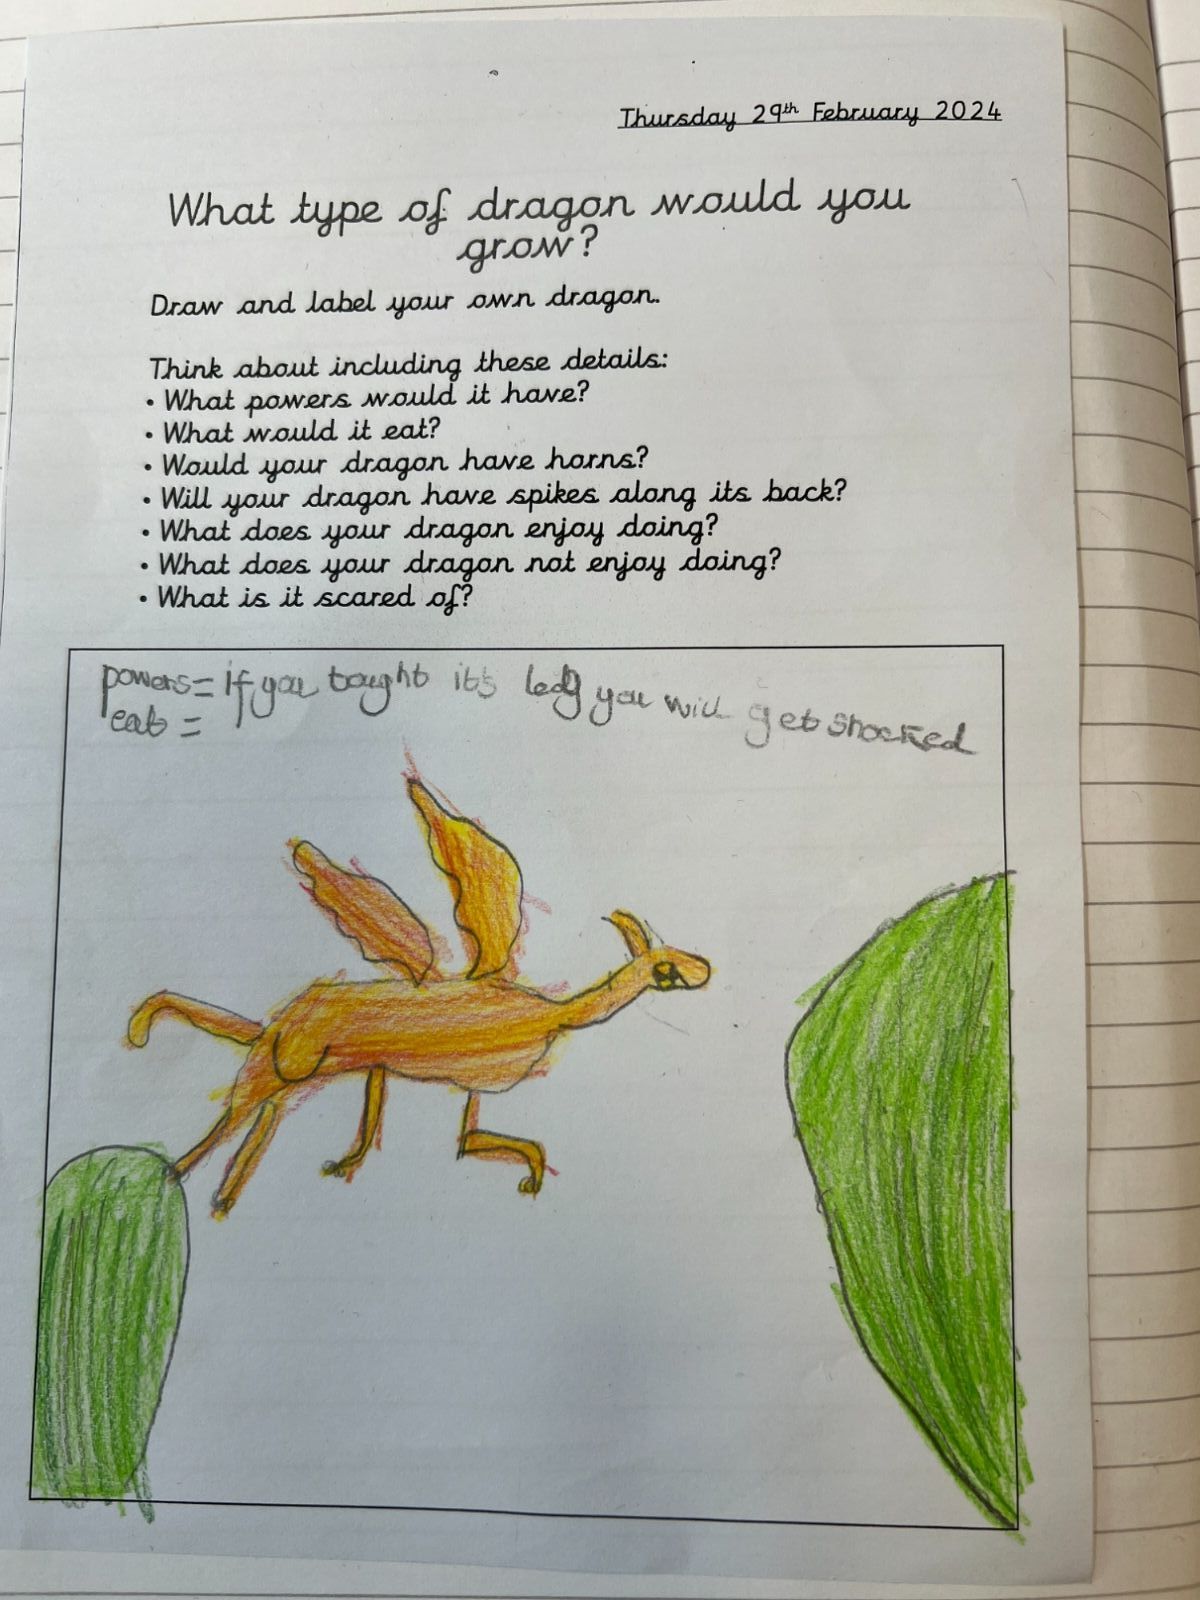 Thursday 29th February 2024
What type of dragon would you
grow?
Draw and label your own dragon.
Think about including these details:
• What powers would it have?
• What would it eat?
• Would your dragon have horns?
• Will your dragon have spikes along its back?
• What does your dragon enjoy doing?
• What does your dragon not enjoy doing?
• What is it scared of?
powers = if you it's you will get shocked
eat =